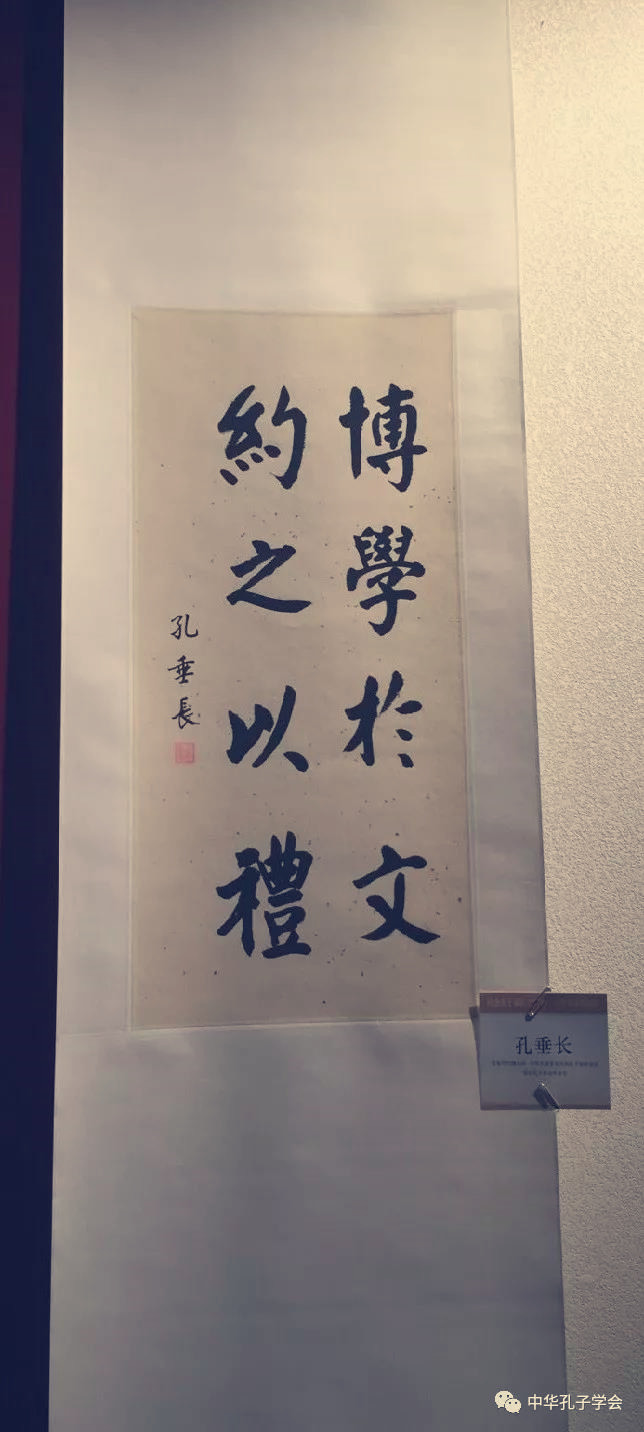 博學於文
約之以禮
孔垂長
孔垂长
中华孔子学会